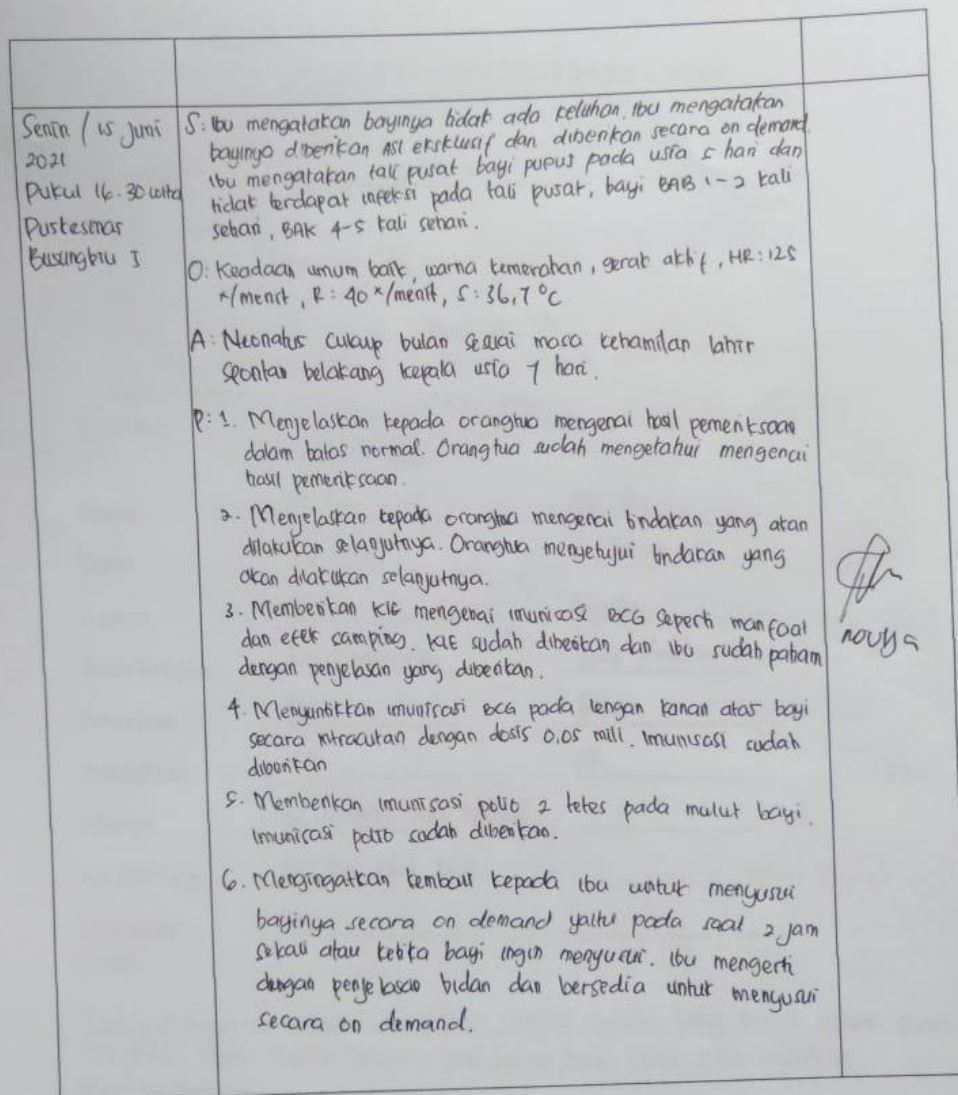 Senin / 15 Juni
2021
Pukul 16.30 wita
Puskesmas
Busungbiu I
S: Ibu mengatakan bayinya tidak ada keluhan, ibu mengatakan
bayinya diberikan ASI eksklusif dan diberikan secara on demand.
Ibu mengatakan tali pusat bayi pupus pada usia 5 hari dan
tidak terdapat infeksi pada tali pusat, bayi BAB 1-2 kali
sehari, BAK 4-5 kali sehari.
O: Keadaan umum baik, warna kemerahan, gerak aktif, HR: 125
x/menit, R: 40 x/menit, S: 36,7 °C
A: Neonatus cukup bulan sesuai masa kehamilan lahir
spontan belakang kepala usia 7 hari.
P: 1. Menjelaskan kepada orangtua mengenai hasil pemeriksaan
dalam batas normal. Orangtua sudah mengetahui mengenai
hasil pemeriksaan.
2. Menjelaskan kepada orangtua mengenai tindakan yang akan
dilakukan selanjutnya. Orangtua menyetujui tindakan yang
akan dilakukan selanjutnya.
3. Memberikan KIE mengenai imunisasi BCG seperti manfaat
dan efek samping. KIE sudah diberikan dan ibu sudah paham
dengan penjelasan yang diberikan.
4. Menyuntikkan imunisasi BCG pada lengan kanan atas bayi
secara intracutan dengan dosis 0,05 mili. Imunisasi sudah
diberikan
5. Memberikan imunisasi polio 2 tetes pada mulut bayi.
Imunisasi polio sudah diberikan.
6. Mengingatkan kembali kepada ibu untuk menyusui
bayinya secara on demand yaitu pada saat 2 jam
sekali atau ketika bayi ingin menyusui. Ibu mengerti
dengan penjelasan bidan dan bersedia untuk menyusui
secara on demand.